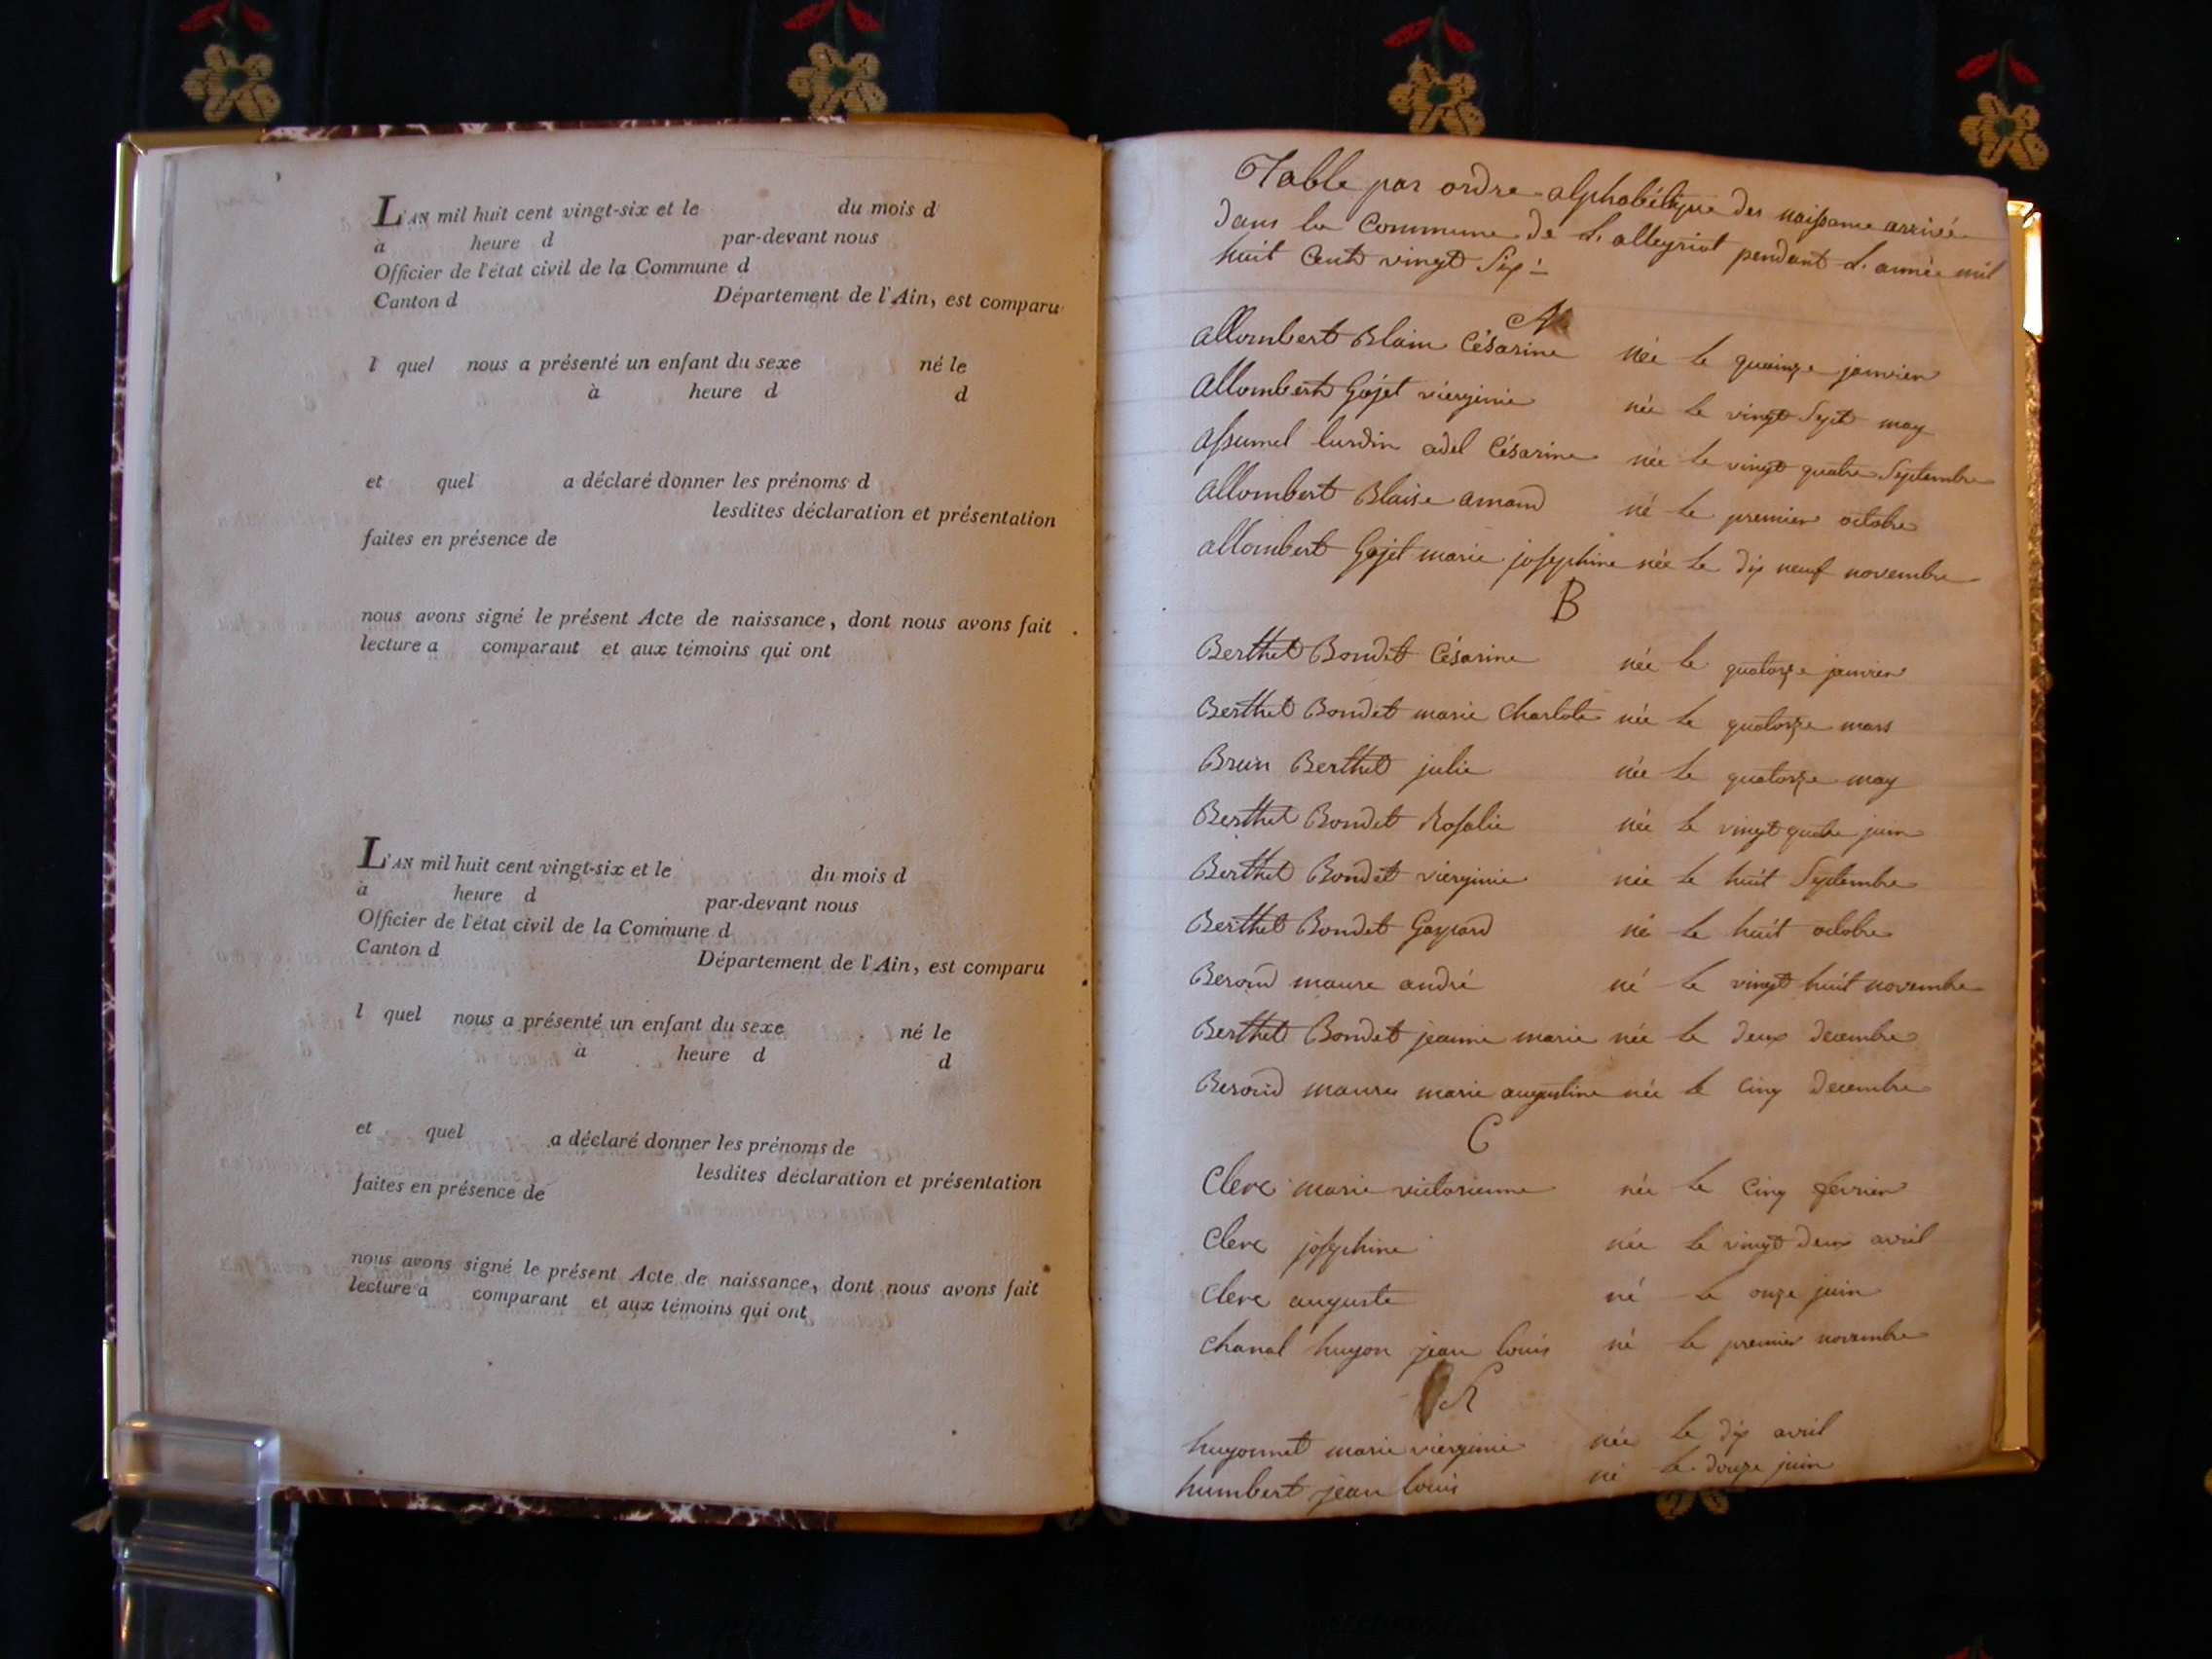 L'AN mil huit cent vingt-six et le du mois d
à heure d par-devant nous
Officier de l'état civil de la Commune d
Canton d Département de l'Ain, est comparu
l quel nous a présenté un enfant du sexe né le
à heure d d
et quel a déclaré donner les prénoms d
lesdites déclaration et présentation
faites en présence de
nous avons signé le présent Acte de naissance, dont nous avons fait
lecture a comparaut et aux témoins qui ont
L'AN mil huit cent vingt-six et le du mois d
à heure d par-devant nous
Officier de l'état civil de la Commune d
Canton d Département de l'Ain, est comparu
l quel nous a présenté un enfant du sexe né le
à heure d d
et quel a déclaré donner les prénoms de
lesdites déclaration et présentation
faites en présence de
nous avons signé le présent Acte de naissance, dont nous avons fait
lecture à comparant et aux témoins qui ont
Table par ordre alphabétique des naissance arrivé
dans la Commune de L'alleyriat pendant L'année mil
huit Cents vingt Six
A
allombert Blain Césarine née le quinze janvier
allombert Gojet vierginie née le vingt Sept may
assumel lurdin adel Césarine née le vingt quatre Septembre
allombert Blaise amand né le premier octobre
allombert Gojet marie josephine née le dix neuf novembre
B
Berthet Bondet Césarine née le quatorze janvier
Berthet Bondet marie Charlote née le quatorze mars
Brun Berthet julie née le quatorze may
Berthet Bondet Rosalie née le vingt quatre juin
Berthet Bondet vierginie née le huit Septembre
Berthet Bondet Gaspard né le huit octobre
Beroud maure andré né le vingt huit novembre
Berthet Bondet jeanne marie née le deux decembre
Beroud maure marie augustine née le cinq decembre
C
Clerc marie victorienne née le cinq fevrier
Clerc josephine née le vingt deux avril
Clerc auguste né le onze juin
Chanal huyon jean louis né le premier novembre
h
huyonnet marie vierginie née le dix avril
humbert jean louis né le douze juin